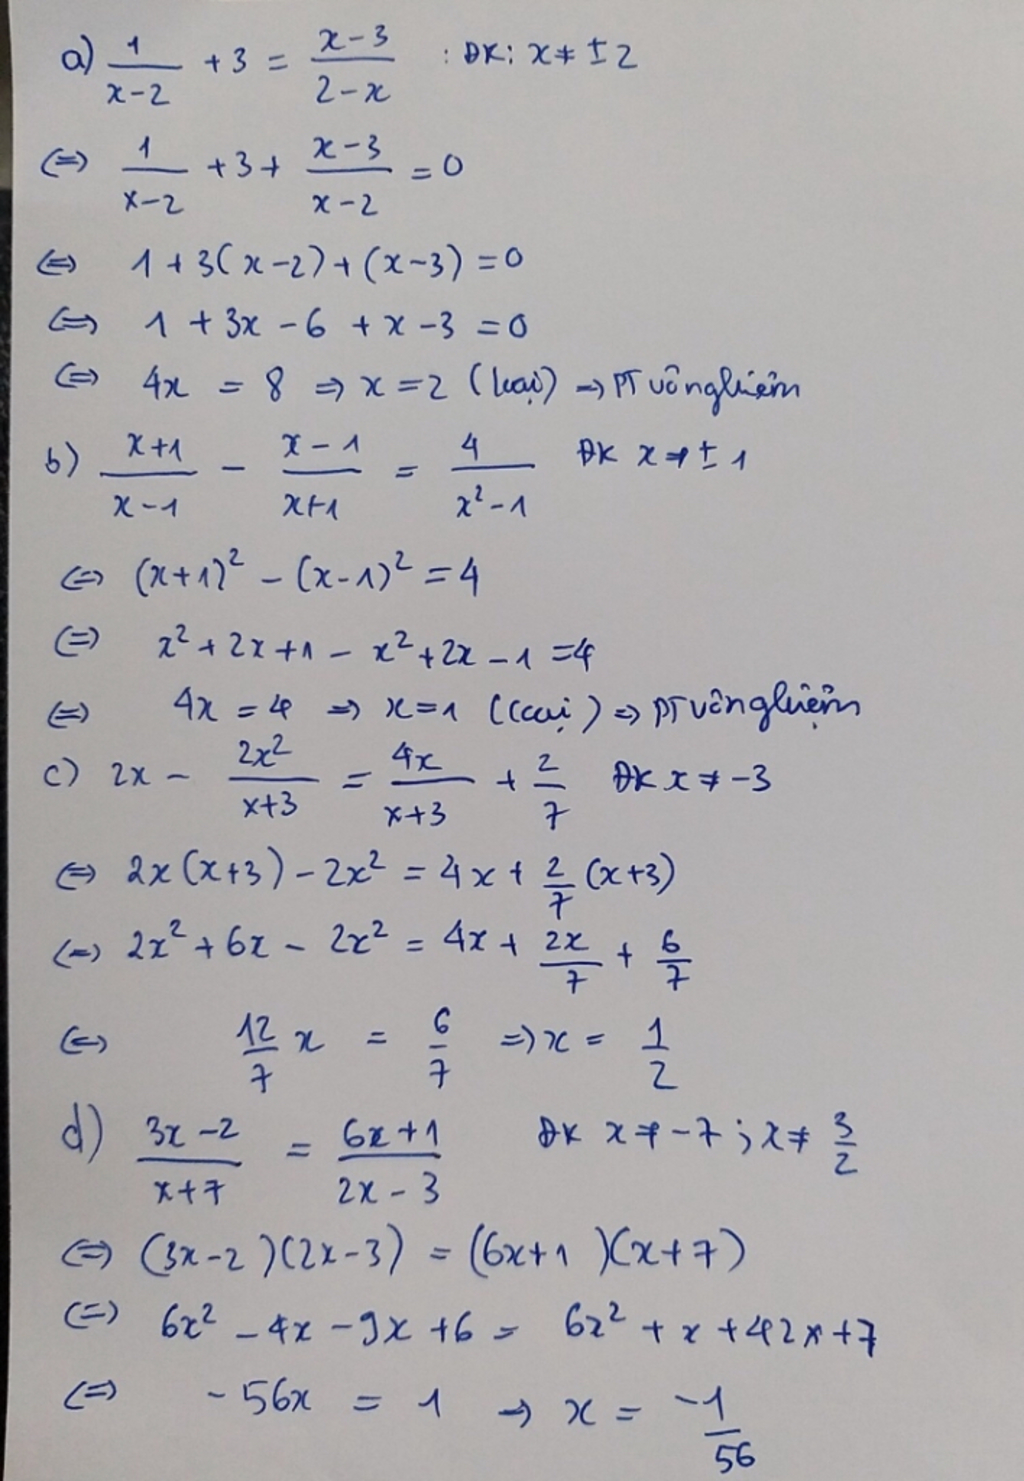 a) 1/(x-2) + 3 = (x-3)/(2-x) : ĐK: x ≠ ±2
⇔ 1/(x-2) + 3 + (x-3)/(x-2) = 0
⇔ 1 + 3(x-2) + (x-3) = 0
⇔ 1 + 3x - 6 + x - 3 = 0
⇔ 4x = 8 ⇒ x = 2 (loại) → PT vô nghiệm
b) (x+1)/(x-1) - (x-1)/(x+1) = 4/(x²-1) ĐK x ≠ ±1
⇔ (x+1)² - (x-1)² = 4
⇔ x² + 2x + 1 - x² + 2x - 1 = 4
⇔ 4x = 4 ⇒ x = 1 (loại) ⇒ PT vô nghiệm
c) 2x - 2x²/(x+3) = 4x/(x+3) + 2/7 ĐK x ≠ -3
⇔ 2x(x+3) - 2x² = 4x + 2/7 (x+3)
⇔ 2x² + 6x - 2x² = 4x + 2x/7 + 6/7
⇔ 12/7 x = 6/7 ⇒ x = 1/2
d) (3x-2)/(x+7) = (6x+1)/(2x-3) ĐK x ≠ -7 ; x ≠ 3/2
⇔ (3x-2)(2x-3) = (6x+1)(x+7)
⇔ 6x² - 4x - 9x + 6 = 6x² + x + 42x + 7
⇔ -56x = 1 → x = -1/56